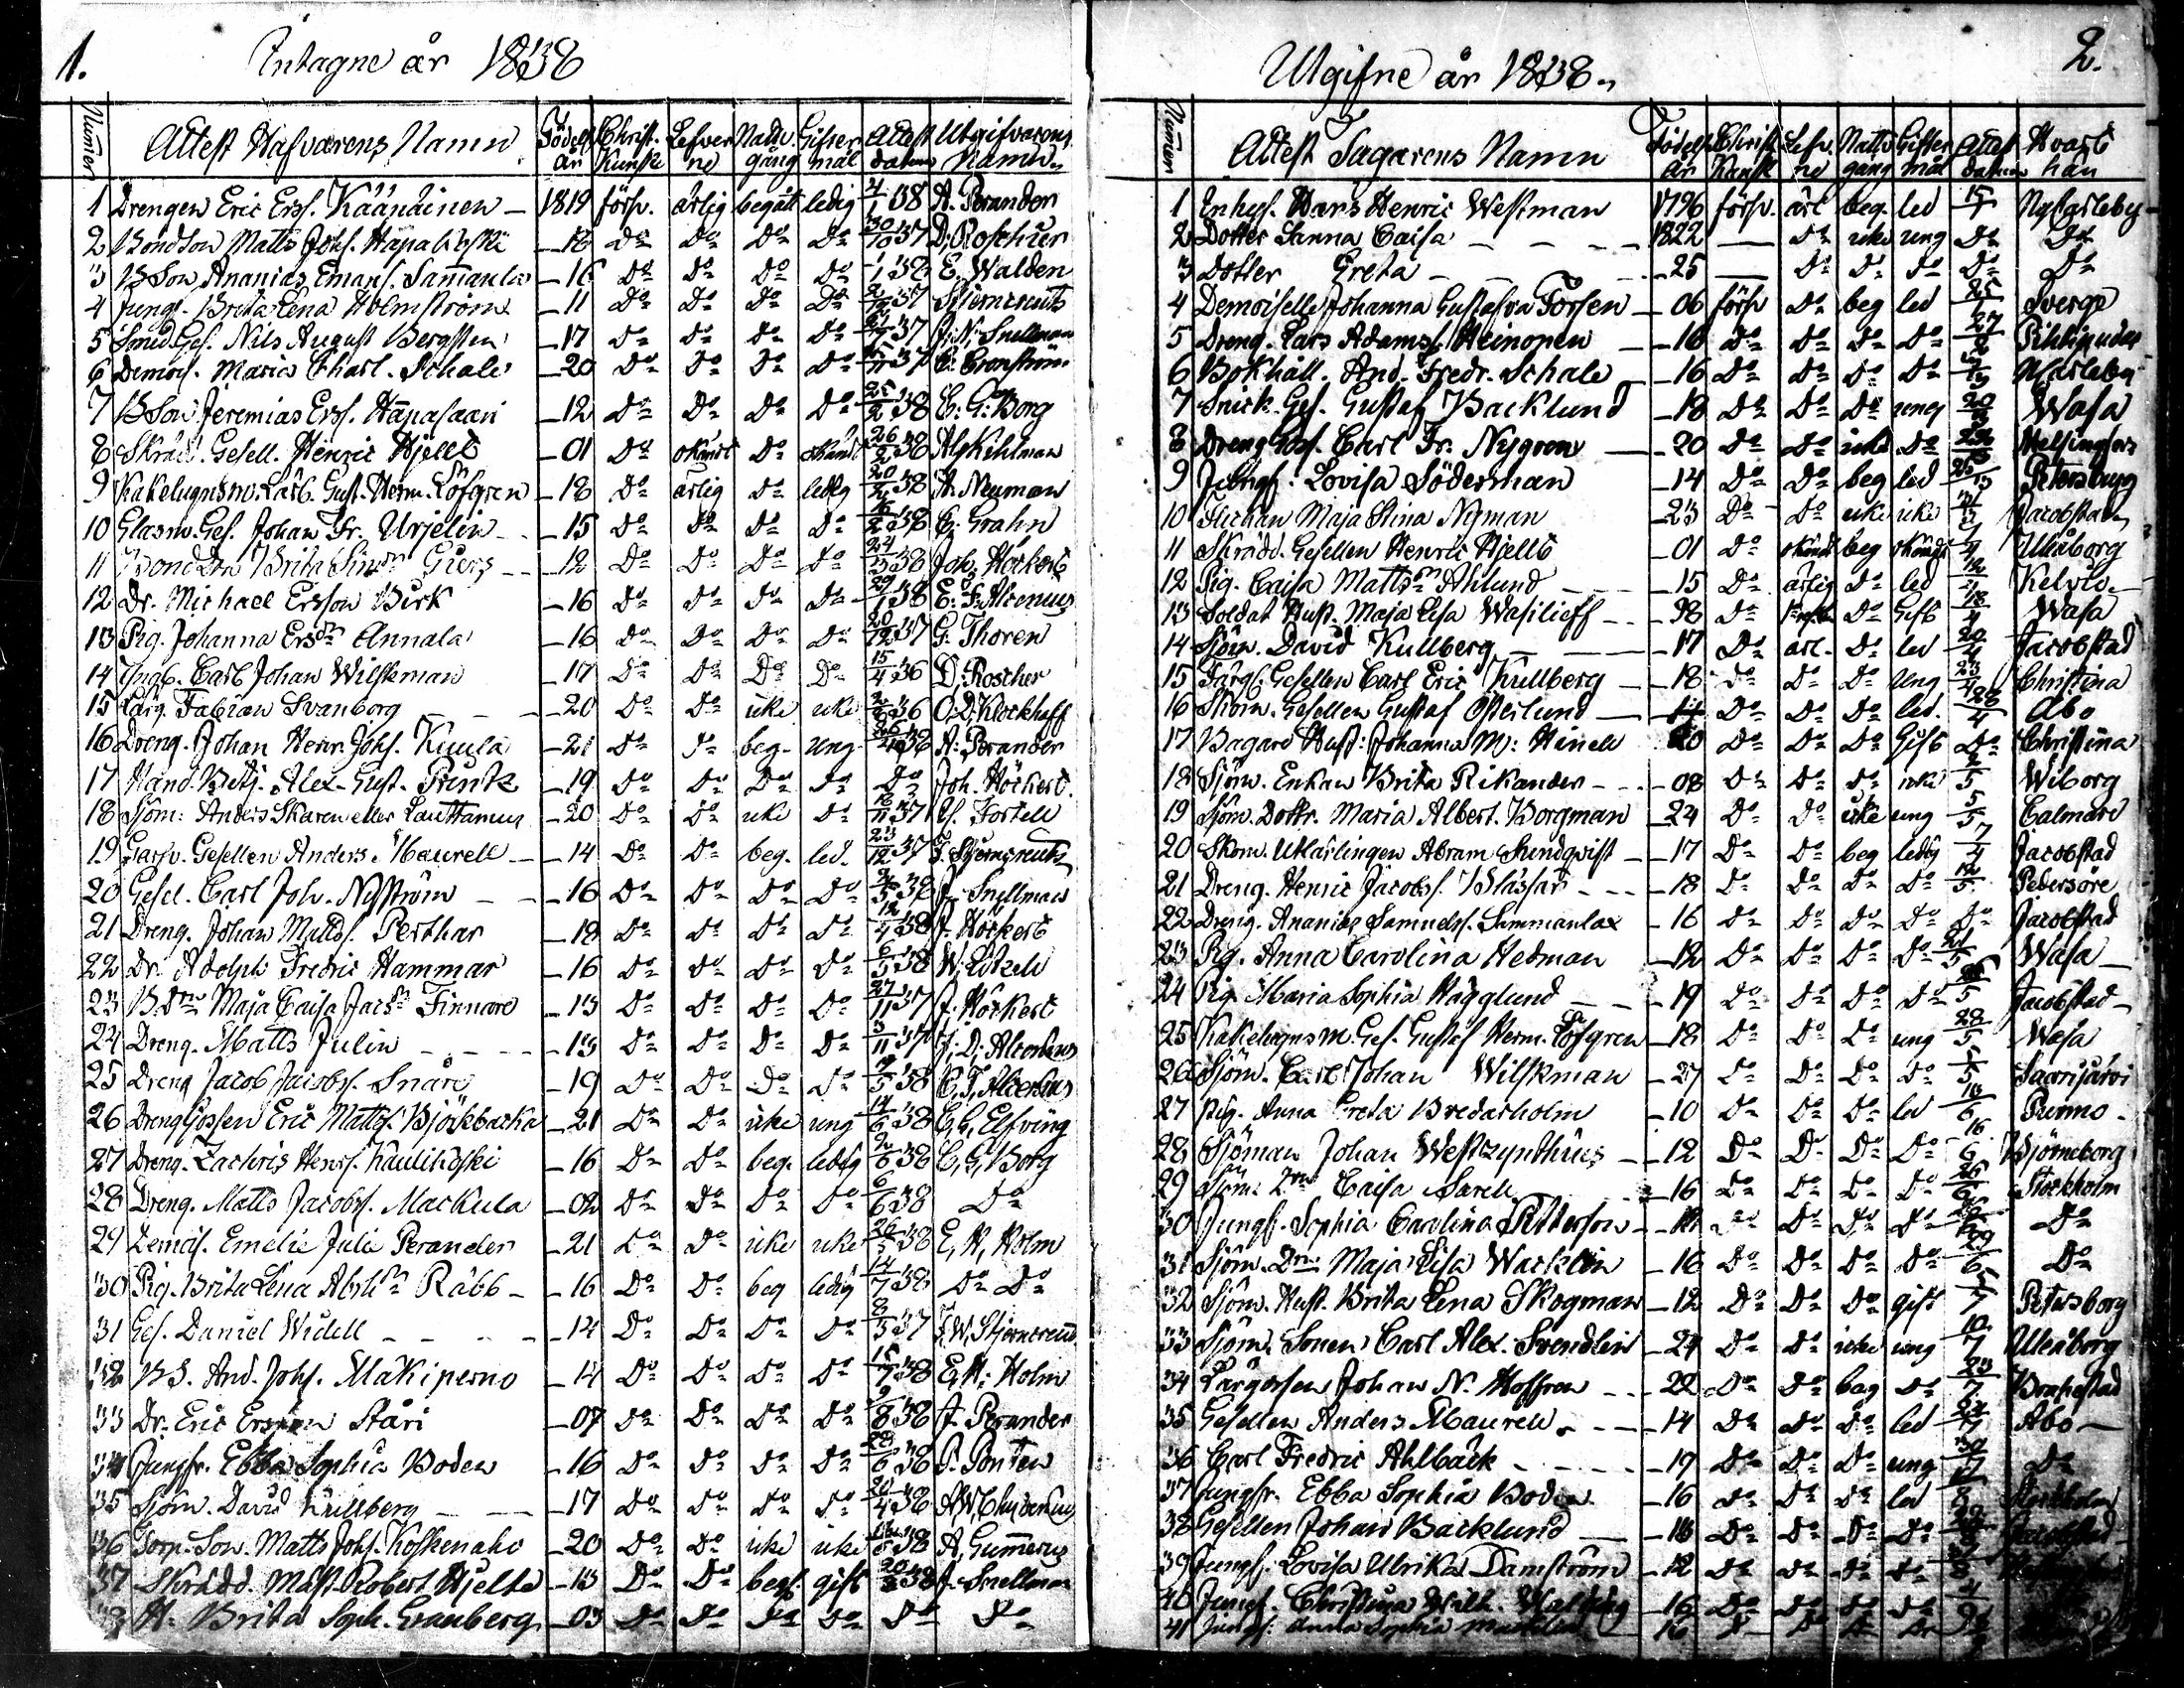 1.
Intagne år 1838
Numer Attest Hafvarens Namn Födels år Christ. Kunsk Lefver ne Nattv. gång Gifter mål Attest datum Utgifvarens Namn
1 Drengen Eric Ersf. Käänäinen 1819 försv. ärlig begått ledig 4/1 38 A. Perander
2 Bondson Matts Johs. Haapakoski 18 Do Do Do Do 30/10 37 D. Roschier
3 BSon Ananias Emans. Sammanla 16 Do Do Do Do 38 E. Walden
4 Jungf. Brita Lena Holmström 11 Do Do Do Do 37
5 Smed Ges. Nils August Bergsten 17 Do Do Do Do 37 J. N. Snellman
6 Demois. Maria Charl. Schale 20 Do Do Do Do 37
7 BSon Jeremias Ersf. Hapasaari 12 Do Do Do Do 25/2 38 C. G. Borg
8 Skrädd. Gesell. Henric Hjellt 01 Do okändt Do okändt 26/2 38
9 Kakelugnsm. Lärl. Gust. Herm. Löfgren 18 Do ärlig Do ledig 20/ 38 A. Neuman
10 Glasm. Ges. Johan Fr. Urjelin 15 Do Do Do Do 38 C. Grahn
11 Bond Dtr Brita Simsdr Giers 12 Do Do Do Do 24/3 38 Joh. Höckert
12 Dr. Michael Ersson Birk 16 Do Do Do Do 29/1 38 E. F. Alcenius
13 Pig. Johanna Ersdr Annala 16 Do Do Do Do 20/12 37 G. Thoren
14 Yngl. Carl Johan Wilskman 17 Do Do Do Do 15/4 36 D. Roscher
15 Lärg. Fabian Svanborg 20 Do Do icke icke 36 O. D. Klockhoff
16 Dreng. Johan Henr. Johs. Kuula 21 Do Do beg. ung 26/4 38 A. Perander
17 Hand. Betj. Alex. Gust. Printz 19 Do Do Do Do Do Joh. Höckert.
18 Sjöm. Anders Skaren eller Lauttamus 20 Do Do icke Do 37 Fortell
19 Garfv. Gesellen Anders Maurell 14 Do Do beg. led. 23/12 37
20 Gesel. Carl Joh. Nyström 16 Do Do Do Do 38 J. Snellman
21 Dreng. Johan Matts. Perthar 18 Do Do Do Do 12/4 38 J. Höckert
22 Dr. Adolph Fredric Hammar 16 Do Do Do Do 6/5 38
23 B.Dtr Maja Caisa Jacsdr Finnare 13 Do Do Do Do 27/11 37 J. Höckert
24 Dreng. Matts Julin 13 Do Do Do Do 3/11 37 J. D. Alcenius
25 Dreng Jacob Jacobs. Snåre 19 Do Do Do Do 38
26 Dreng Gossen Eric Matts. Björkbacka 21 Do Do icke ung 14/6 38 C. G. Elfving
27 Dreng. Zachris Henrs. Kaulikoski 16 Do Do beg. ledig 38 C. G. Borg
28 Dreng. Matts Jacobs. Mackula 02 Do Do Do Do 6/6 38 Do
29 Demois. Emelie Julie Perander 21 Do Do icke icke 26/5 38 E. H. Holm
30 Pig. Brita Lena Abrhdr Räbb 16 Do Do beg ledig 14/7 38 Do Do
31 Ges. Daniel Widell 14 Do Do Do Do 8/5 37
32 BS. And. Johs. Mäkiperno 14 Do Do Do Do 15/7 38 E. H. Holm
33 Dr. Eric Ersson Stäri 07 Do Do Do Do 9/8 38 A. Perander
34 Jungfr. Ebba Sophia Boden 16 Do Do Do Do 28/6 38 P. Ponten
35 Sjöm. David Kullberg 17 Do Do Do Do 20/4 38
36 Torp. Son. Matts Johs. Koskenaho 20 Do Do icke icke 38 A. Gummerus
37 Skrädd. Mäst. Robert Hjelte 13 Do Do beg. gift 20/ 38 J. Snellman
38 H. Brita Soph. Granberg 03 Do Do Do Do Do Do
2.
Utgifne år 1838.
Numer Attest Tagarens Namn Födels år Christ. Kunsk Lefv. ne Nattv gång Gifter mål Attest datum Hvart hän
1 Enhys. Hans Henric Westman 1796 försv. ärl beg. led 15/1 Nycarleby
2 Dotter Sanna Caisa 1822 Do icke ung Do Do
3 Dotter Greta 25 Do Do Do Do Do
4 Demoiselle Johanna Gustafva Forsen 06 försv Do beg led 25/1 Sverge
5 Dreng. Lars Adams. Heinonen 16 Do Do Do Do 27/2 Pihlipudas
6 Bokhåll. And. Fredr. Schale 16 Do Do Do Do NCarleby
7 Snick. Ges. Gustaf Backlund 18 Do Do Do ung 20/3 Wasa
8 Dreng Goss. Carl Fr. Nygren 20 Do Do icke Do Helsingfors
9 Lovisa Söderman 14 Do Do beg led Petersburg
10 Flickan Maja Stina Nyman 23 Do Do icke icke Jacobstad
11 Skrädd. Gesellen Henric Hjellt 01 Do okändt beg okändt Uleåborg
12 Pig. Caisa Mattsdr Ahlund 15 Do ärlig Do led 12/4 Kelvio
13 Soldat Hust. Maja Lisa Wasilieff 98 Do Do Gift 18/4 Wasa
14 Sjöm. David Kullberg 17 Do ärl. Do led 20/4 Jacobstad
15 Färg. Gesellen Carl Eric Kullberg 18 Do Do Do Ung 23/4 Christina
16 Skom. Gesellen Gustaf Österlund 14 Do Do Do led. 28/4 Abo
17 Bagare Hust. Johanna M. Hinell 20 Do Do Do Gift Do Christina
18 Sjöm. Enkan Brita Rikander 08 Do Do Do icke 2/5 Wiborg
19 Sjöm. Dottr. Maria Albert. Borgman 24 Do Do icke ung 5/5 Calmare
20 Skom. Utlärlingen Abram Sundqvist 17 Do Do beg ledig 7/4 Jacobstad
21 Dreng. Henric Jacobs. Bläsfar 18 Do Do Do Do 12/5 Pedersöre
22 Dreng. Ananias Samuels. Sammanlax 16 Do Do Do Do Do Jacobstad
23 Pig. Anna Carolina Hedman 12 Do Do Do Do 21/5 Wasa
24 Pig. Maria Sophia Hägglund 19 Do Do Do Do Jacobstad
25 Kakelugnsm. Ges. Gustaf Herm. Löfgren 18 Do Do Do ung 28/5 Wasa
26 Sjöm. Carl Johan Wilskman 27 Do Do Do Do Saarijärvi
27 Pig. Anna Greta Bredarholm 10 Do Do Do led 13/6 Purmo
28 Sjöman Johan Westzynthius 12 Do Do Do Do 16/6 Björneborg
29 Sjöm. Dtr Caisa Sarell 16 Do Do Do Do 26/6 Stockholm
30 Jungf. Sophia Carolina Petterson Do Do Do Do Do
31 Sjöm. Dtr. Maja Lisa Wacklin 16 Do Do Do Do 29/6 Do
32 Sjöm. Hust. Brita Lena Skogman 12 Do Do Do gift 5/7 Petersborg
33 Sjöm. Sonen Carl Alex. Svendlin 24 Do Do icke ung 10/7 Uleåborg
34 Färgossen Johan N. Hoffren 22 Do Do beg Do 23/7 Brahestad
35 Gesellen Anders Maurell 14 Do Do Do led Abo
36 Carl Fredric Ahlbäck 19 Do Do Do ung 30/7 Do
37 Jungfr. Ebba Sophia Boden 16 Do Do Do led Stockholm
38 Gesellen Johan Backlund 16 Do Do Do Do Jacobstad
39 Jungf. Lovisa Ulrika Damström 12 Do Do Do Do
40 Jungf. Christina Wilh. 16 Do Do Do Do
41 Jungf. Anna Sophia 16 Do Do Do Do